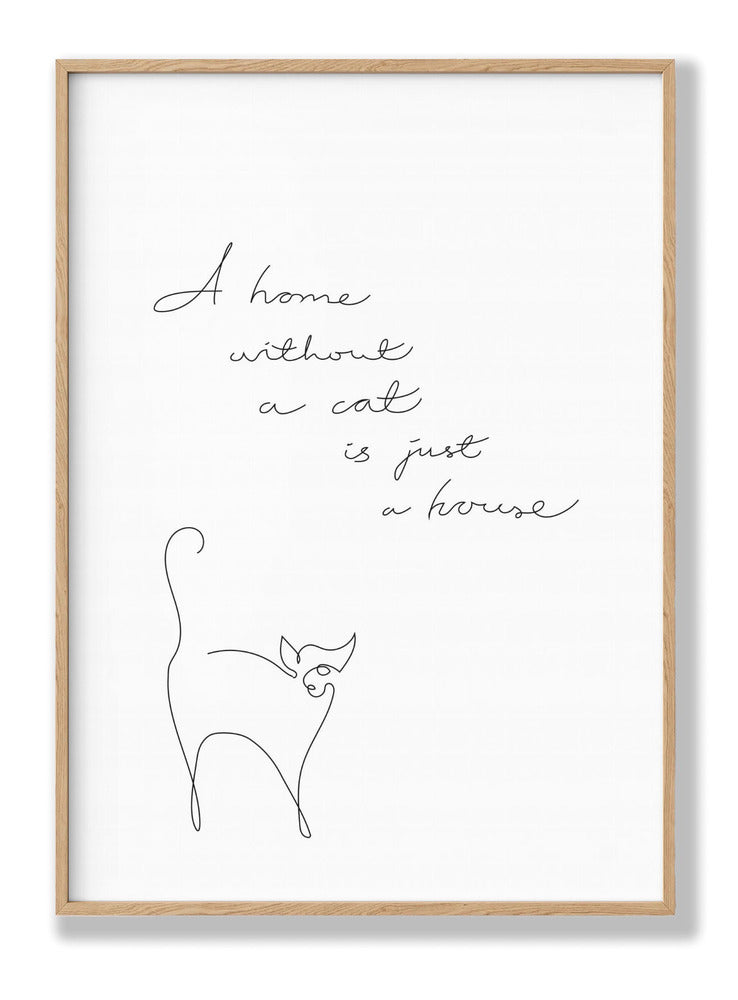 A home
without
a cat
is just
a house